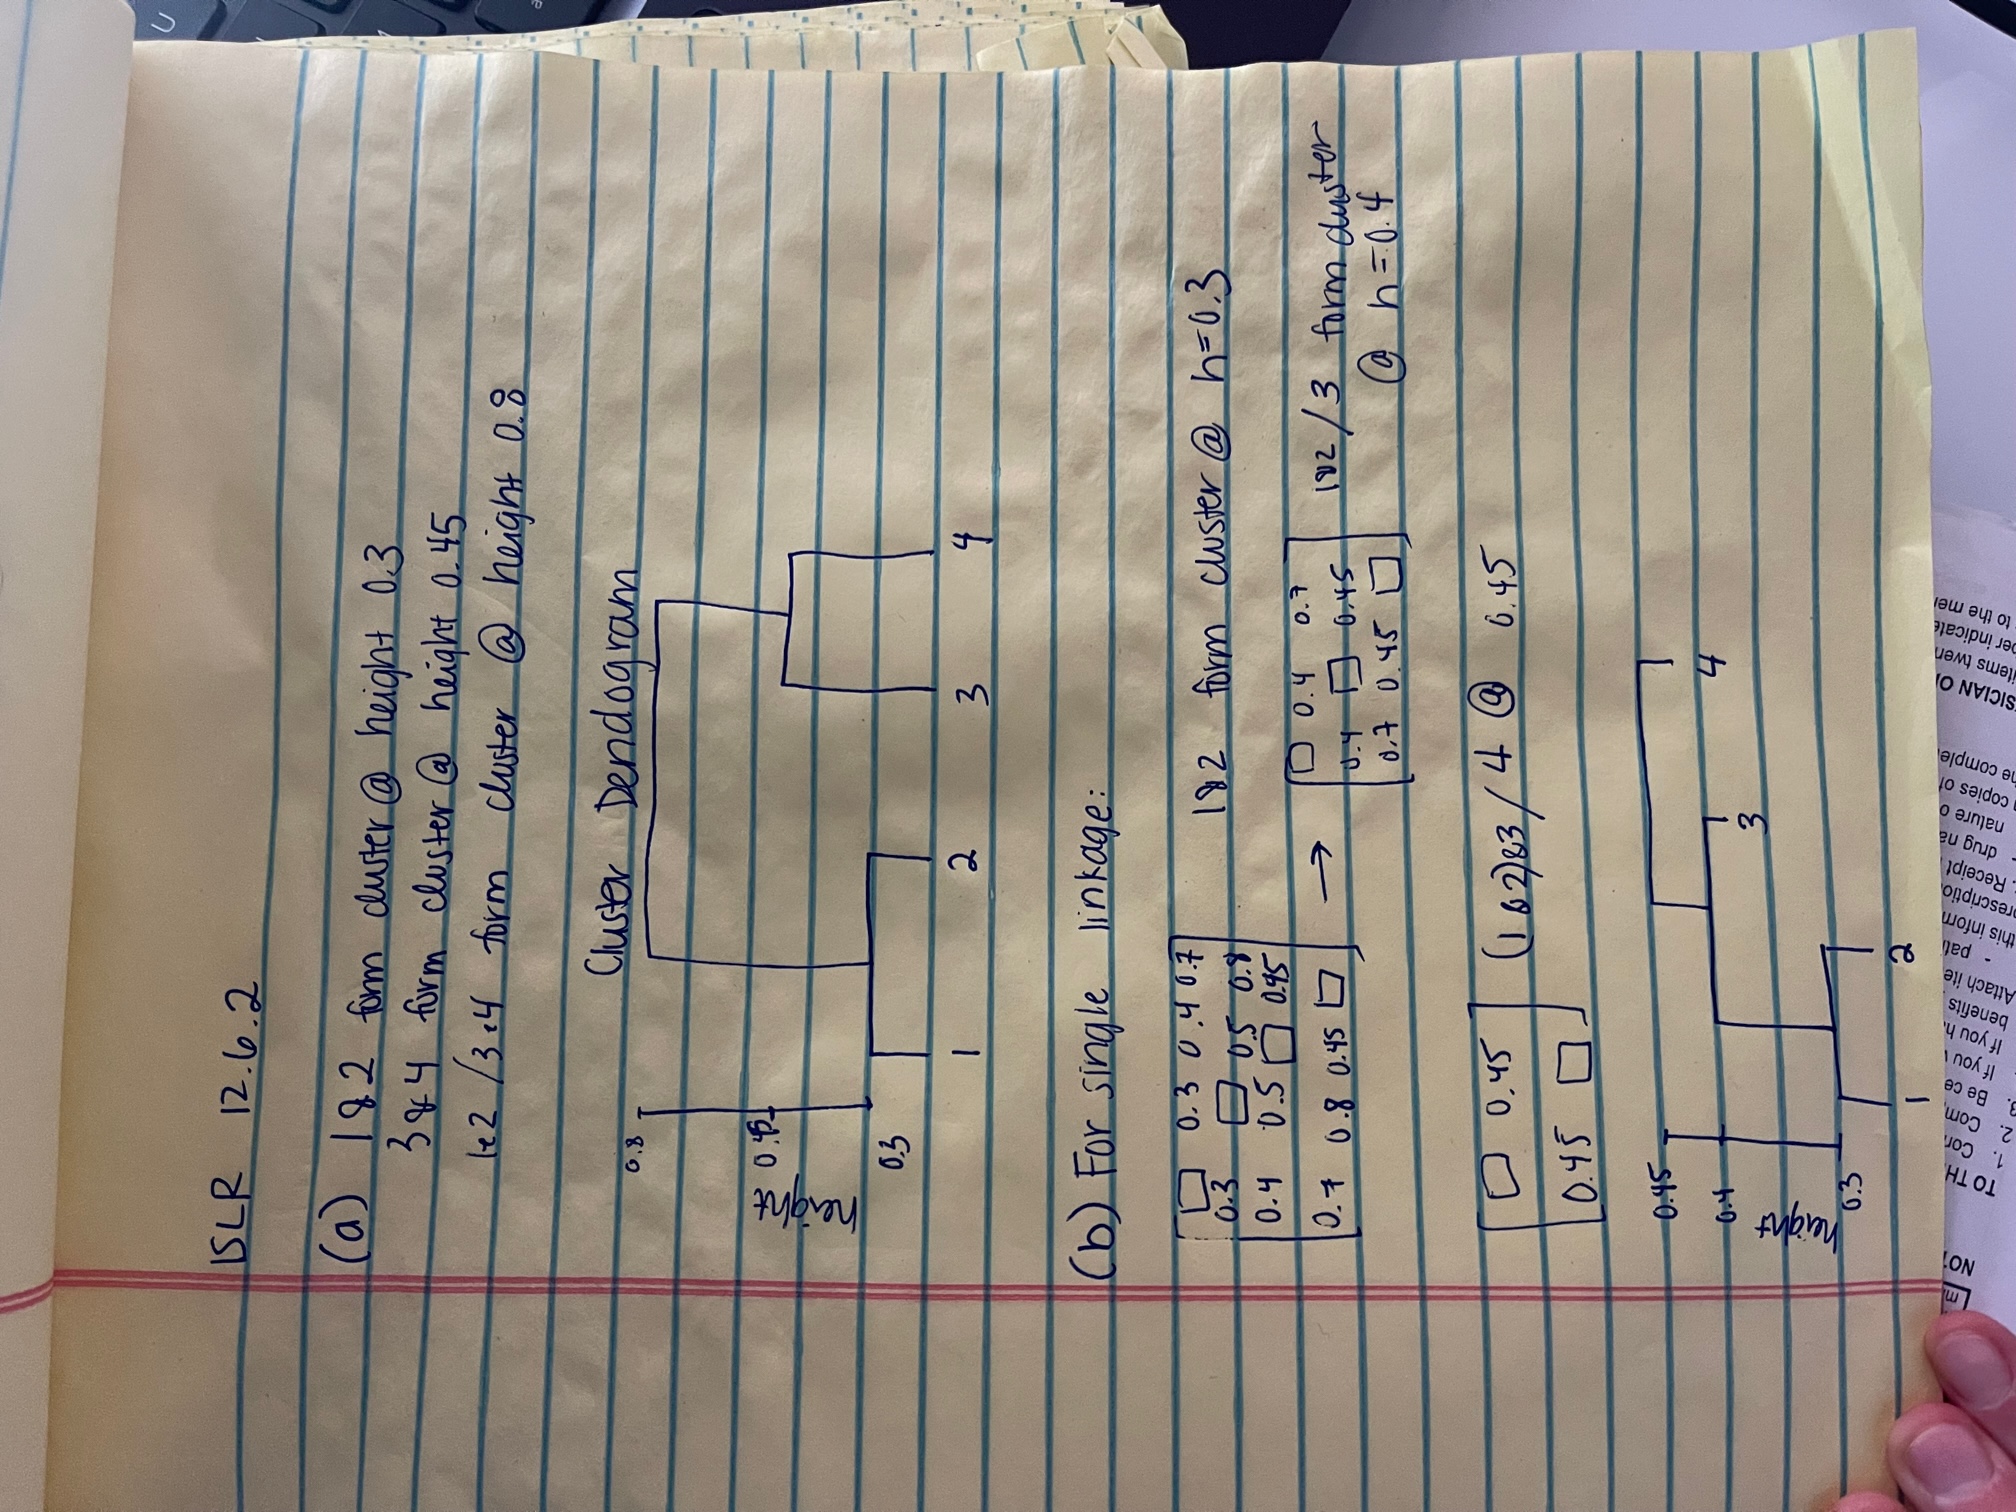 ISLR 12.6.2
(a) 1&2 form cluster @ height 0.3
3&4 form cluster @ height 0.45
1&2 /3&4 form cluster @ height 0.8
Cluster Dendogram
0.8
height 0.45
0.3
1 2 3 4
(b) For single linkage:
□ 0.3 0.4 0.7
0.3 □ 0.5 0.8
0.4 0.5 □ 0.45
0.7 0.8 0.45 □
1&2 form cluster @ h=0.3
→
□ 0.4 0.7
0.4 □ 0.45
0.7 0.45 □
1&2/3 form cluster
@ h=0.4
□ 0.45
0.45 □
(1&2)&3/4 @ 0.45
0.45
0.4
height
0.3
4
3
1 2
U
NO
TO TH
1. Cor
2. Com
3. Be ce
If you
If you h
benefits
Attach ite
- pati
this inform
rescriptio
Receipt
- drug na
nature o
copies of
he comple
SICIAN O
items twen
per indicate
to the me